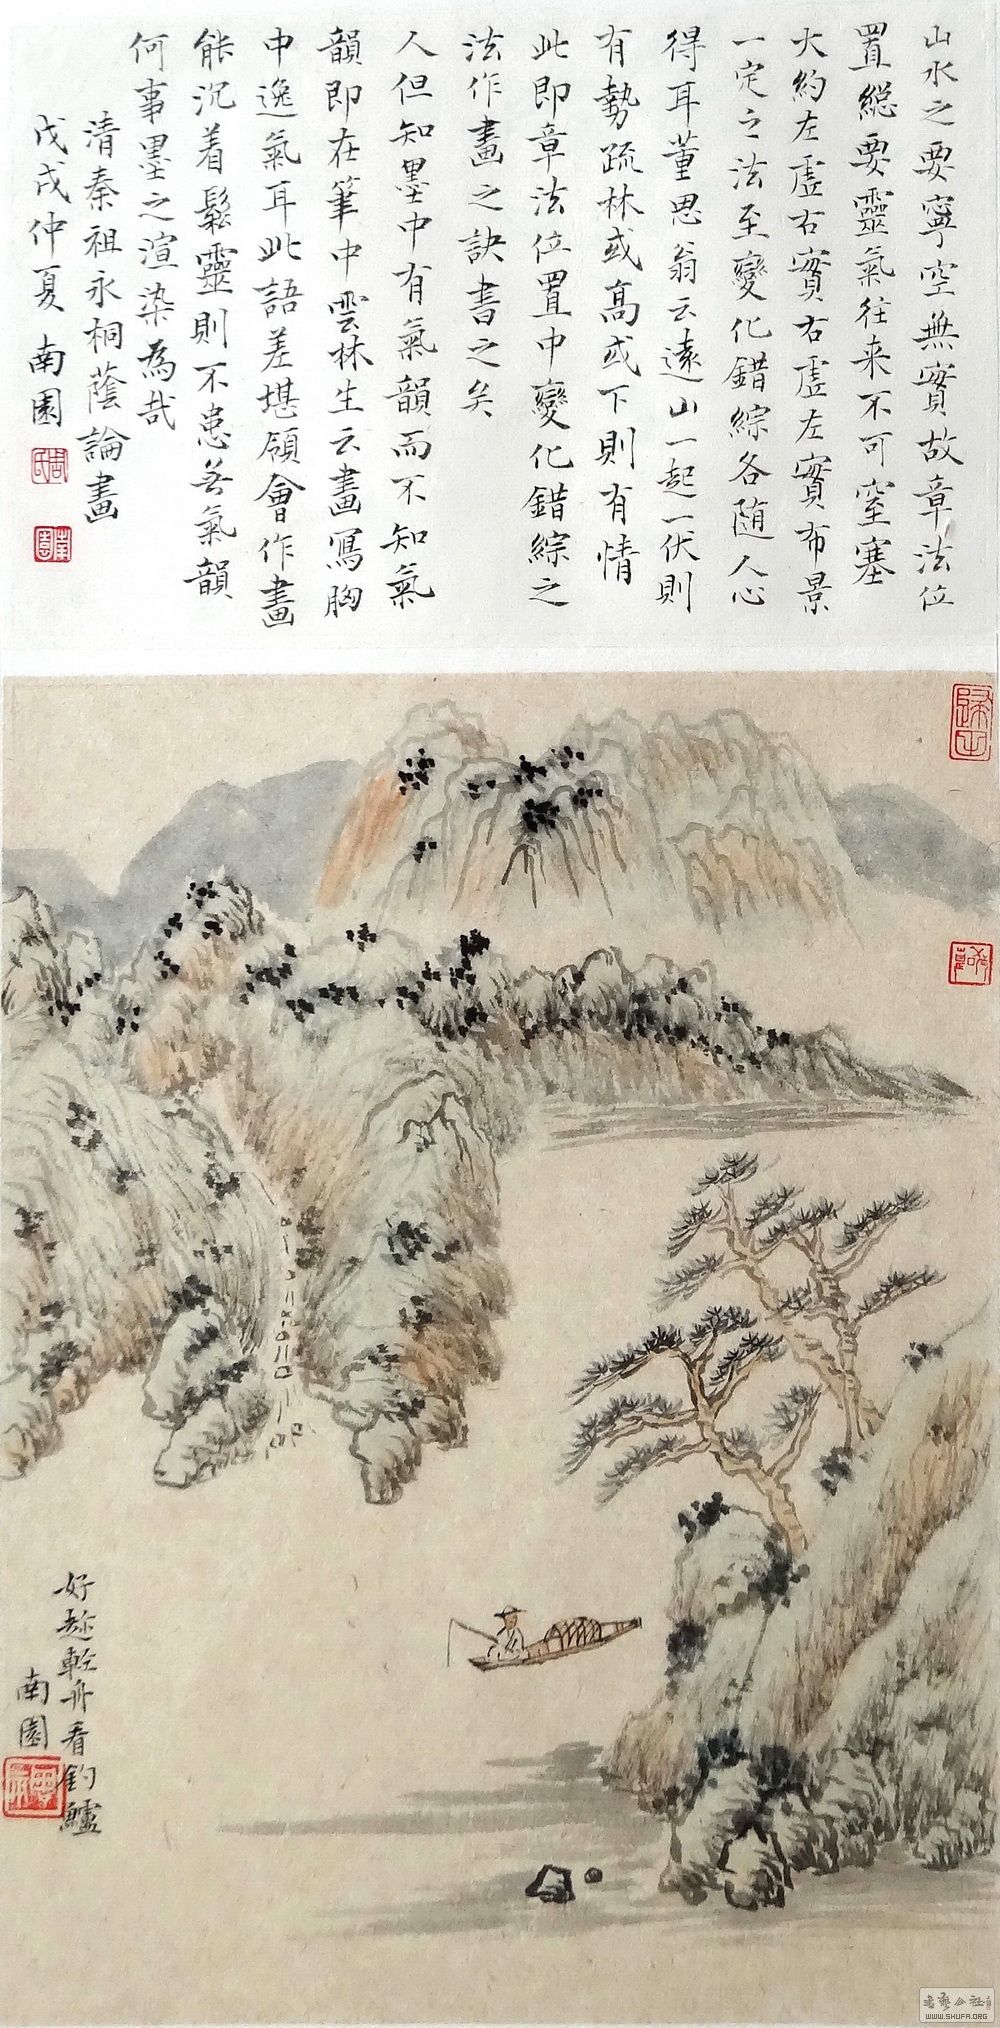 山水之要寧空無實故章法位
置總要靈氣往来不可窒塞
大約左虛右實右虛左實布景
一定之法至變化錯綜各随人心
得耳董思翁云遠山一起一伏則
有勢疏林或高或下則有情
此即章法位置中變化錯綜之
法作畫之訣書之矣
人但知墨中有氣韻而不知氣
韻即在筆中雲林生云畫寫胸
中逸氣耳此語差堪領會作畫
能沉着鬆靈則不患無氣韻
何事墨之渲染為哉
清秦祖永桐蔭論畫
戊戌仲夏 南園
周氏
南園
好趂輕舟看釣鱸
南園
書藝公社
WWW.SHUFA.ORG